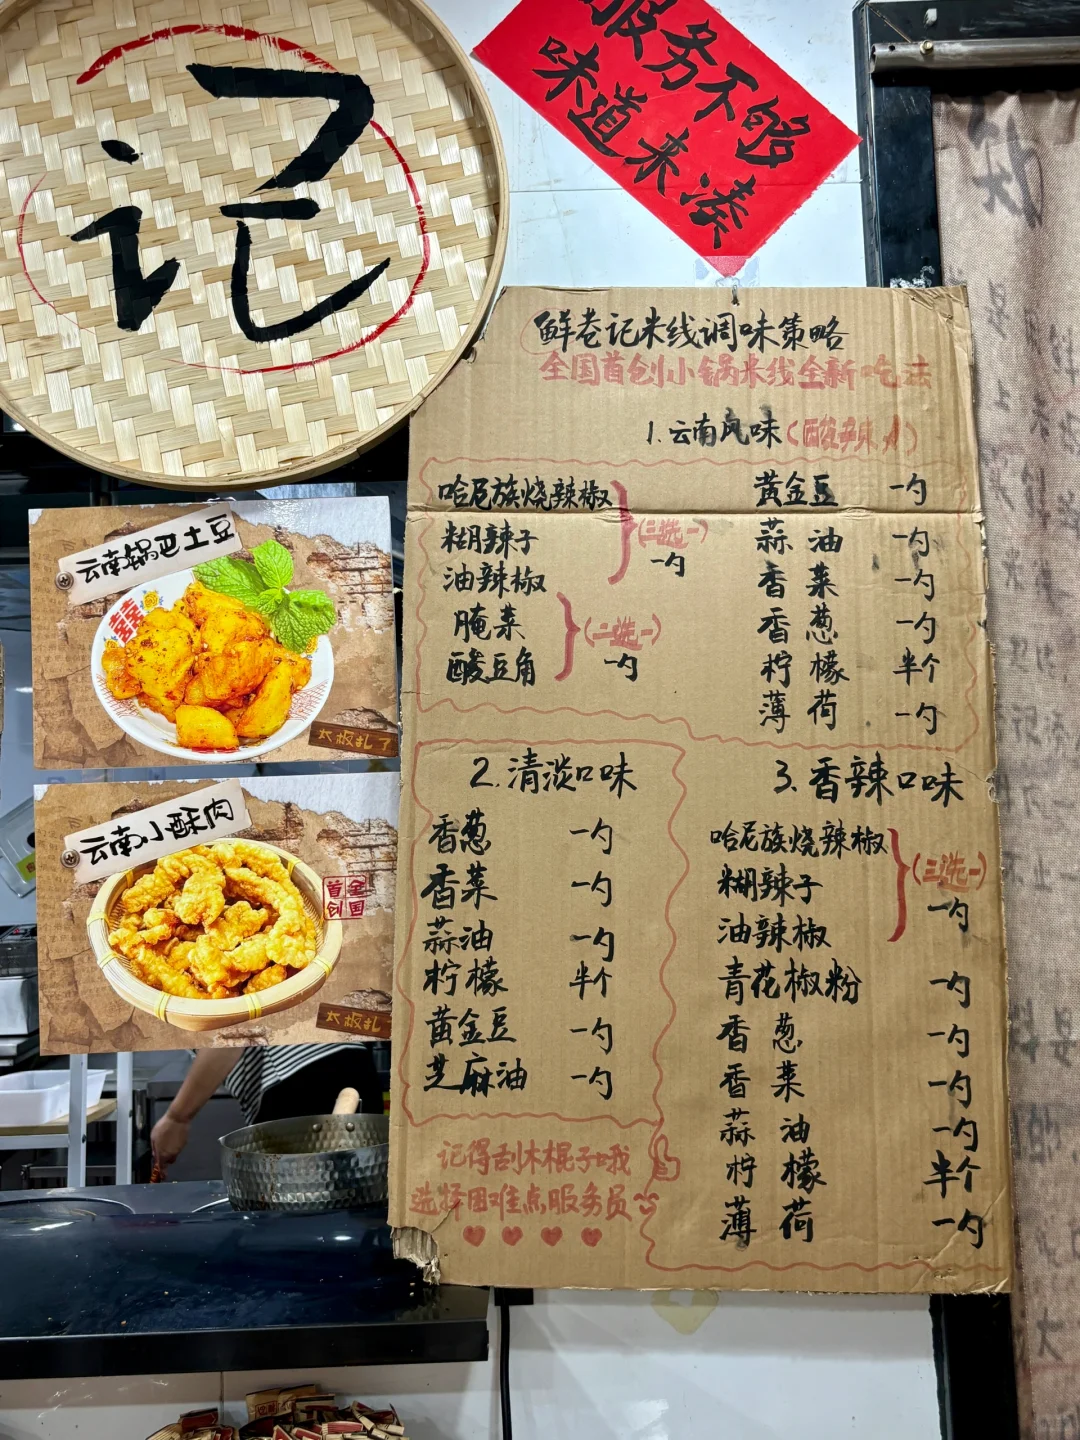 记
服务不够
味道来凑
鲜巷记米线调味策略
全国首创小锅米线全新吃法
1.云南风味(酸辣)
哈尼族烧辣椒
糊辣子
油辣椒
(三选一)
一勺
腌菜
酸豆角
(二选一)
一勺
黄金豆 一勺
蒜油 一勺
香菜 一勺
香葱 一勺
柠檬 半个
薄荷 一勺
2.清淡口味
香葱 一勺
香菜 一勺
蒜油 一勺
柠檬 半个
黄金豆 一勺
芝麻油 一勺
3.香辣口味
哈尼族烧辣椒
糊辣子
油辣椒
(三选一)
一勺
青花椒粉 一勺
香葱 一勺
香菜 一勺
蒜油 一勺
柠檬 半个
薄荷 一勺
记得刮木棍子哦
选择困难点服务员
云南锅巴土豆
太板扎了
云南小酥肉
全国首创
太板扎